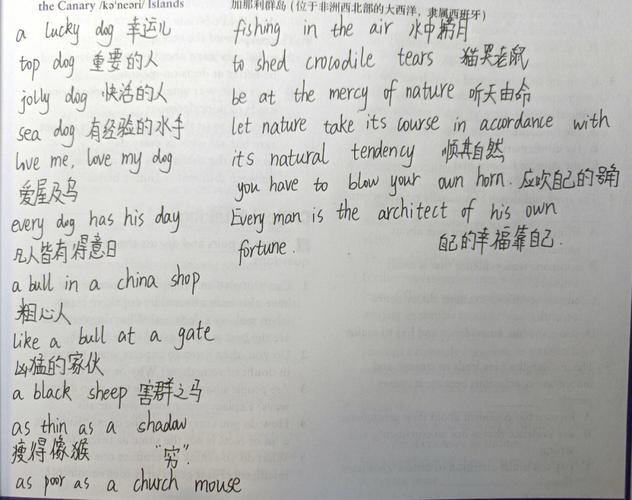 the Canary /kə'neəri/ Islands
加那利群岛 (位于非洲西北部的大西洋，隶属西班牙)
a lucky dog 幸运儿
top dog 重要的人
jolly dog 快活的人
sea dog 有经验的水手
love me, love my dog
爱屋及乌
every dog has his day
凡人皆有得意日
a bull in a china shop
粗心人
like a bull at a gate
凶猛的家伙
a black sheep 害群之马
as thin as a shadow
瘦得像猴
"穷".
as poor as a church mouse
fishing in the air 水中捞月
to shed crocodile tears 猫哭老鼠
be at the mercy of nature 听天由命
let nature take its course in accordance with
its natural tendency 顺其自然
you have to blow your own horn. 应吹自己的号角
Every man is the architect of his own
fortune. 自己的幸福靠自己.